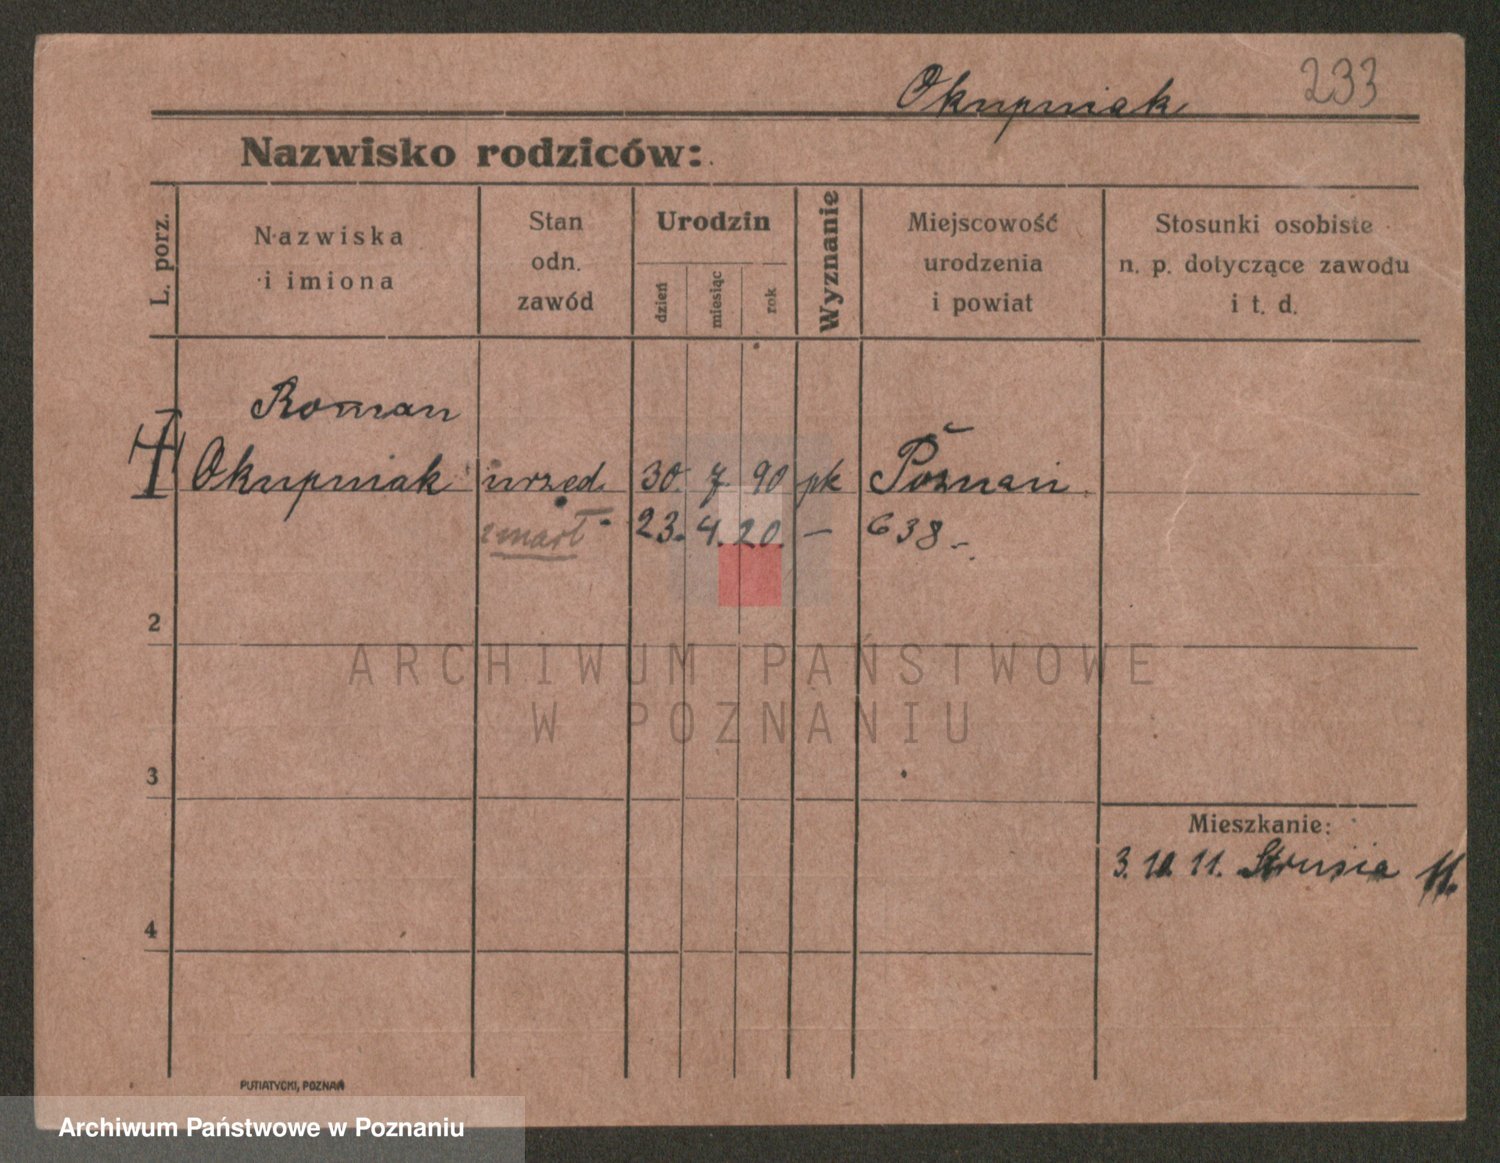 Okupniak
233
Nazwisko rodziców:
L. porz.
Nazwiska
i imiona
Stan
odn.
zawód
Urodzin
dzień
miesiąc
rok
Wyznanie
Miejscowość
urodzenia
i powiat
Stosunki osobiste
n. p. dotyczące zawodu
i t. d.
Roman
Okupniak urzęd. 30. 7. 90 pk Poznań
zmarł 23. 4. 20. — 638.-
2
3
4
Mieszkanie:
3. 10. 11. Strusia 11.
ARCHIWUM PAŃSTWOWE
W POZNANIU
PUTIATYCKI, POZNAŃ
Archiwum Państwowe w Poznaniu